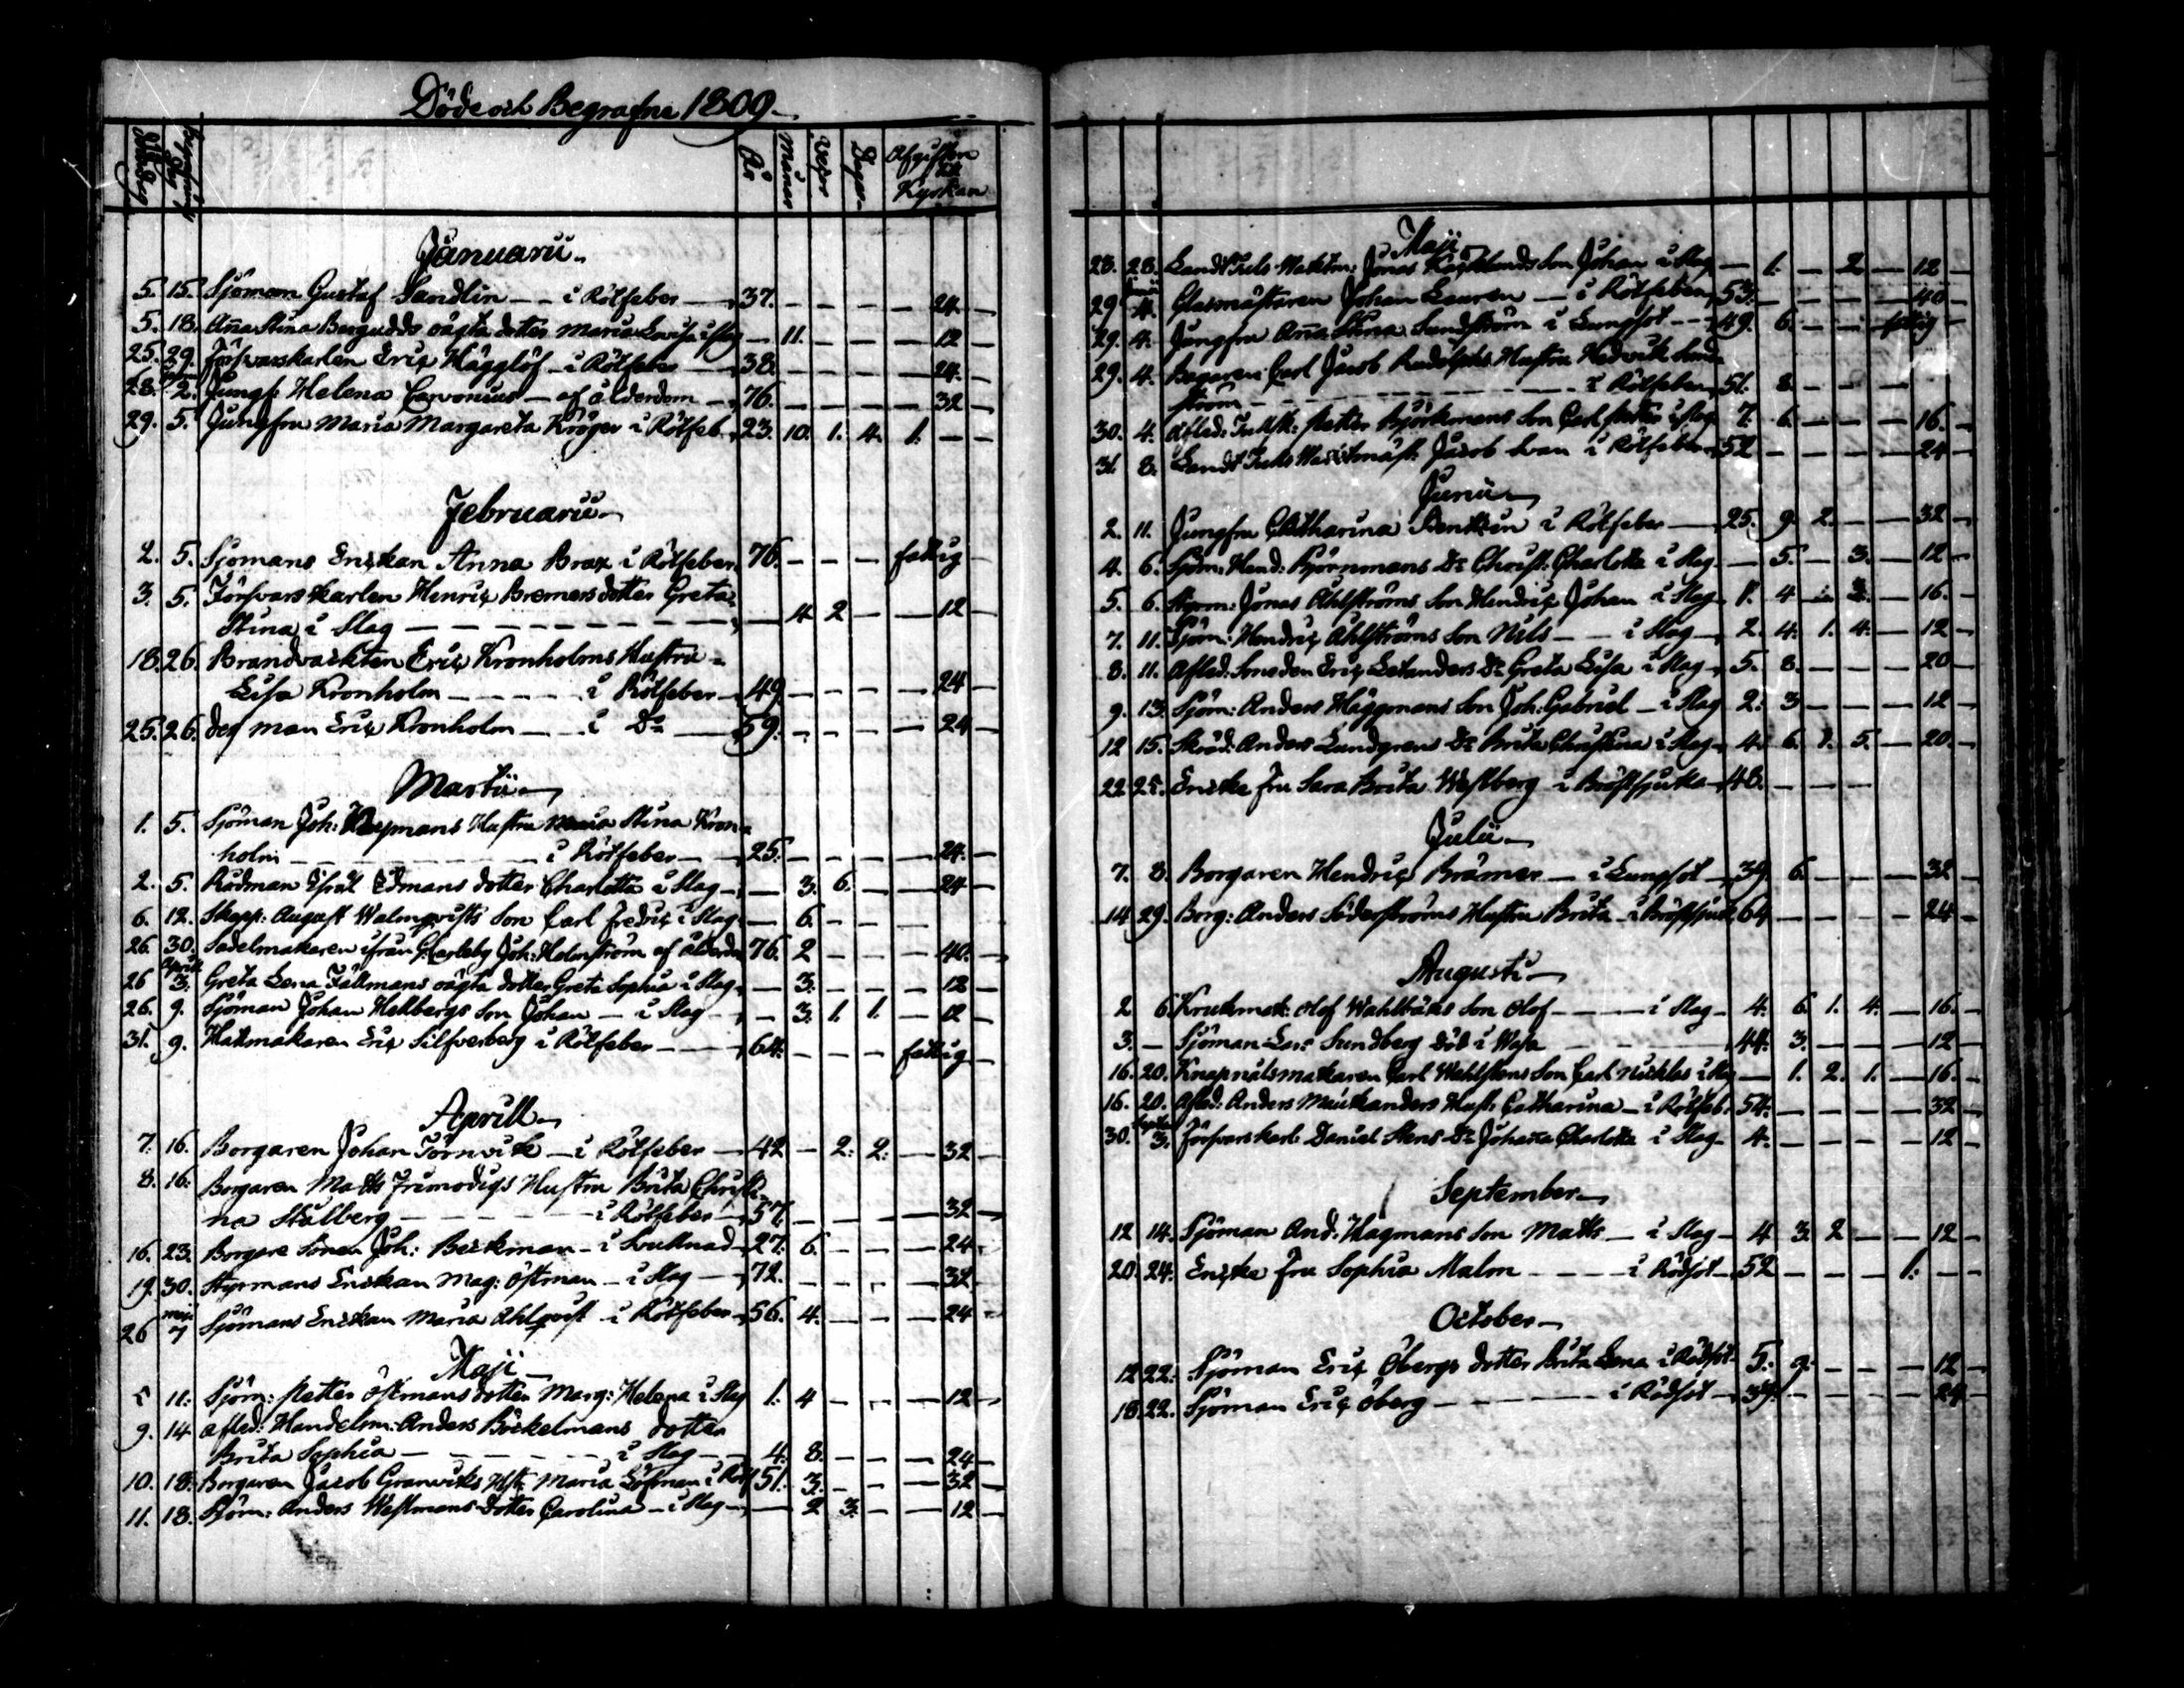 Döde och Begrafne 1809
Död dag Begrafnings Dag År Månar Vekor Dagar Afgiften till Kyrkan
Januarii
5. 15. Sjöman Gustaf Sandlin — i Rötfeber — 37. — — — — 24. —
5. 18. Anna Stina Bergudds oägta dotter Maria Lovisa i slag — 11. — — — 12 —
25. 29. Försvarskarlen Eric Hägglöf — i Rötfeber — 38. — — — — 24. —
28. 2. Jungf: Helena Carvonius — af ålderdom — 76. — — — — 32 —
29. 5. Jungfru Maria Margareta Kröger i Rötfeb. 23. 10. 1. 4. 1. — —
Februarii
2. 5. Sjömans Enckan Anna Brax i Rötfeber. 76. — — — fattig —
3. 5. Försvarskarlen Henric Bremers dotter Greta
Stina i Slag — — 4. 2 — — 12 —
18. 26. Brandvackten Eric Kronholms Hustru
Lisa Kronholm — i Rötfeber — 49. — — — — 24 —
25. 26. dess man Eric Kronholm — i Do — 59. — — — — 24 —
Martii
1. 5. Sjöman Joh: Hagmans Hustru Maria Stina Kron-
holm — i Rötfeber — 25. — — — — 24. —
2. 5. Rådman Israel Edmans dotter Charlotta i Slag — — 3. 6. — — 24 —
6. 12. Skepp: August Walmqvists Son Carl Fredric i Slag — 6. — — —
26. 30. Sadelmakaren ifrån G. Carleby Joh: Holmström af ålderdn 76. 2 — — — 40. —
April
26 3. Greta Lena Fällmans oägta dotter Greta Sophia i Slag — 3. — — — 12 —
26. 9. Sjöman Johan Hellbergs Son Johan — i Slag — — 3. 1. 1. — 12 —
31. 9. Hattmakaren Eric Silfverberg i Rötfeber — 64. — — — fattig —
Aprill
7. 16. Borgaren Johan Törnvik — i Rötfeber — 42 — 2. 2. — 32 —
8. 16. Borgaren Matts Frimodigs Hustru Brita Christi-
na Stålberg — i Rötfeber — 57. — — — — 32 —
16. 23. Borgare Sonen Joh: Beckman — i Svullnad — 27. 6. — — — 24 —
19. 30. Styrmans Enckan Mag: Östman — i Slag — 72. — — — — 32 —
maji
26 7 Sjömans Enckan Maria Ahlqvist — i Rötfeber — 56. 4. — — — 24 —
Maji
5 11. Sjöm: Petter Östmans dotter Marg: Helena i Slag 1. 4 — — — 12 —
9. 14. Afled: Handelsm: Anders Böckelmans dotter
Brita Sophia — i Slag — 4. 8. — — — 24 —
10. 18. Borgaren Jacob Granviks Hustr: Maria Löfman i Rötf 51. 3. — — — 32 —
11. 18. Sjöm: Anders Westmans dotter Carolina — i Slag — — 2 3. — — 12 —
Maji
28. 28. Landt Tuls Wacktm: Jonas son Johan i Slag — 1. — 2 — 12 —
Junii
29 4. Glasmästaren Johan Lauren — i Rötfeber 53. — — — — 40 —
29. 4. Jungfru Anna Stina Sundström i Lungsot — 49. 6. — — — fattig —
29. 4. Bagaren Carl Jacob Rudolphs Hustru Hedvik Sund-
ström — i Rötfeber 51. 8. — — —
30. 4. Afled: Petter Björkmans Son Carl Petter i Slag 7. 6. — — — 16. —
31. 8. Landt Tulls Wacktmäst: Jacob Svan i Rötfeber 52 — — — — 24 —
Junii
2. 11. Jungfru Catharina i Rötfeber — 25. 9. 2. — — 32 —
4. 6. Sjöm: Hend: Björnmans Dr Christ: Charlotta i Slag — 5. — 3. — 12 —
5. 6. Styrm: Jonas Ahlströms Son Hendric Johan i Slag 1. 4 — 3. — 16. —
7. 11. Sjöm: Hendric Ahlströms Son Nils — i Slag — 2. 4. 1. 4. — 12 —
8. 11. Afled. Smeden Eric Dr Greta Lisa i Slag 5. 8. — — — 20 —
9. 13. Sjöm: Anders Häggmans Son Joh: Gabriel — i Slag 2. 3 — — — 12 —
12 15. Skräd: Anders Lundgrens Dr Brita Christina i Slag 4. 6. 1. 5. — 20. —
22 25. Encke fru Sara Brita Westberg i Bröstsjuka — 48. — — —
Julii
7. 8. Borgaren Hendric Brämer — i Lungsot — 39. 6. — — — 32 —
14 29. Borg: Anders Söderströms Hustru Brita — i Bröstsjuk. 64 — — — — 24 —
Augusti
2 6. Krukmak: Olof Wahlbäks Son Olof — i Slag — 4. 6. 1. 4. — 16. —
3. — Sjöman Lars Sundberg död i Wasa — 44. 3. — — — 12 —
16. 20. Knapnålsmakaren Carl Wahlstens Son Carl Nicklas i Slag — 1. 2. 1. — 16. —
16. 20. Afled: Anders Hust: Catharina — i Rötfeb. 54. — — — — 32 —
Septemb
30. 3. Försvarskarl. Daniel Stens Dr Johanna Charlotta i Slag 4. — — — — 12 —
September
12 14. Sjöman And: Hagmans Son Matts — i Slag — 4 3 2 — — 12 —
20. 24. Encke fru Sophia Malm — i Rödsot — 52 — — — 1. — —
October
12 22. Sjöman Eric Öbergs dotter Brita Lena i Rödsot 5. 9. — — — 12 —
18. 22. Sjöman Eric Öberg — i Rödsot — 39. — — — — 24